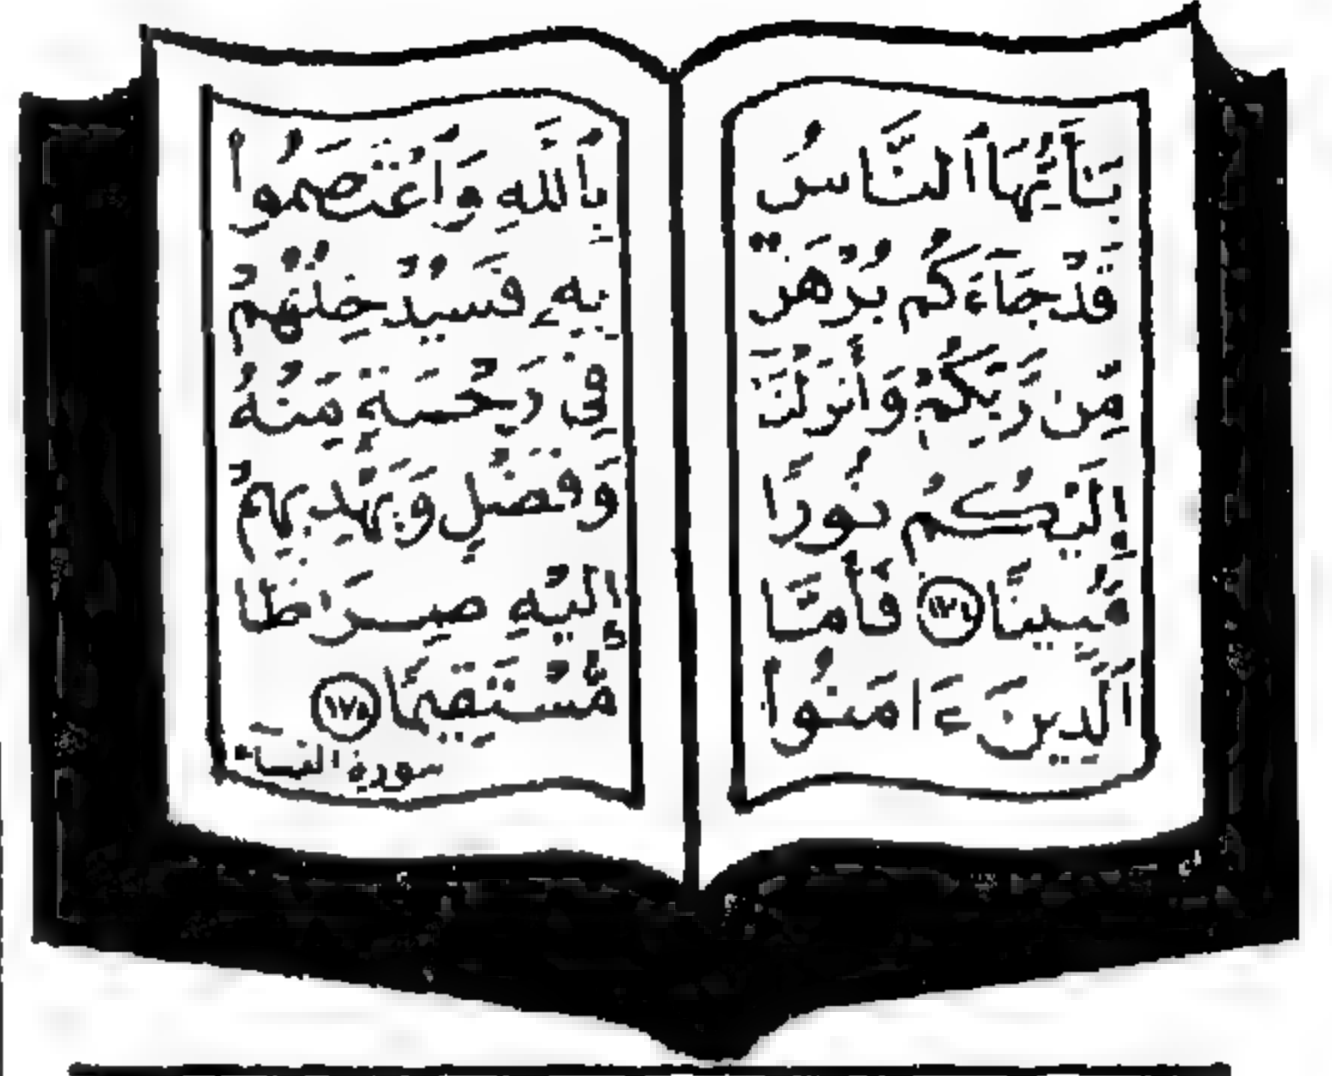 يَـٰٓأَيُّهَا ٱلنَّاسُ
قَدْ جَآءَكُم بُرْهَـٰنٌ
مِّن رَّبِّكُمْ وَأَنزَلْنَآ
إِلَيْكُمْ نُورًا
مُّبِينًا ١٧٤ فَأَمَّا
ٱلَّذِينَ ءَامَنُوا
بِٱللَّهِ وَٱعْتَصَمُوا
بِهِۦ فَسَيُدْخِلُهُمْ
فِى رَحْمَةٍ مِّنْهُ
وَفَضْلٍ وَيَهْدِيهِمْ
إِلَيْهِ صِرَٰطًا
مُّسْتَقِيمًا ١٧٥
سورة النساء